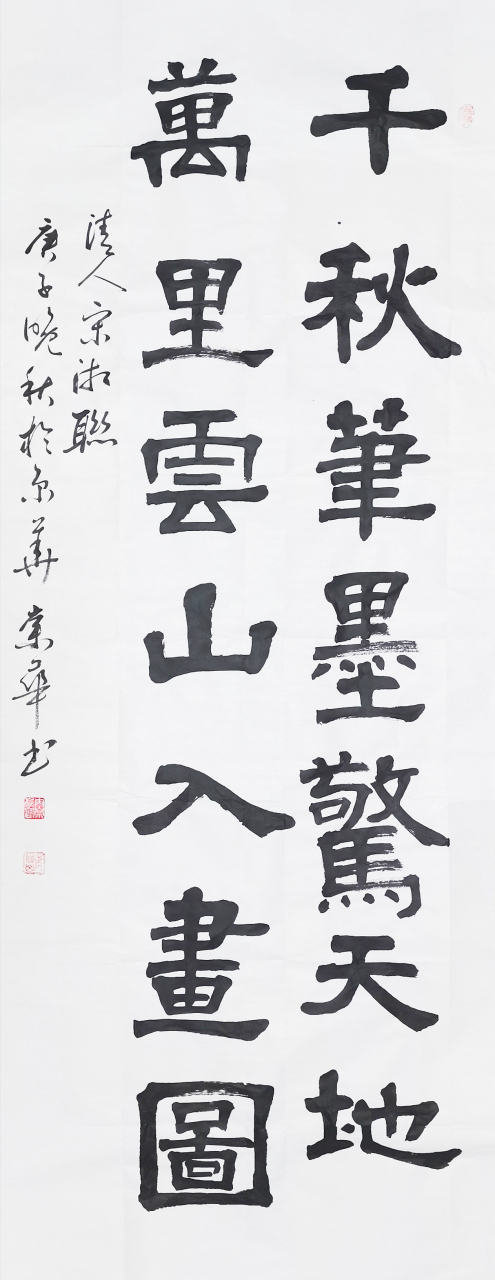 千秋筆墨驚天地
萬里雲山入畫圖
清人宋湘聯
庚子晚秋於京華崇華书